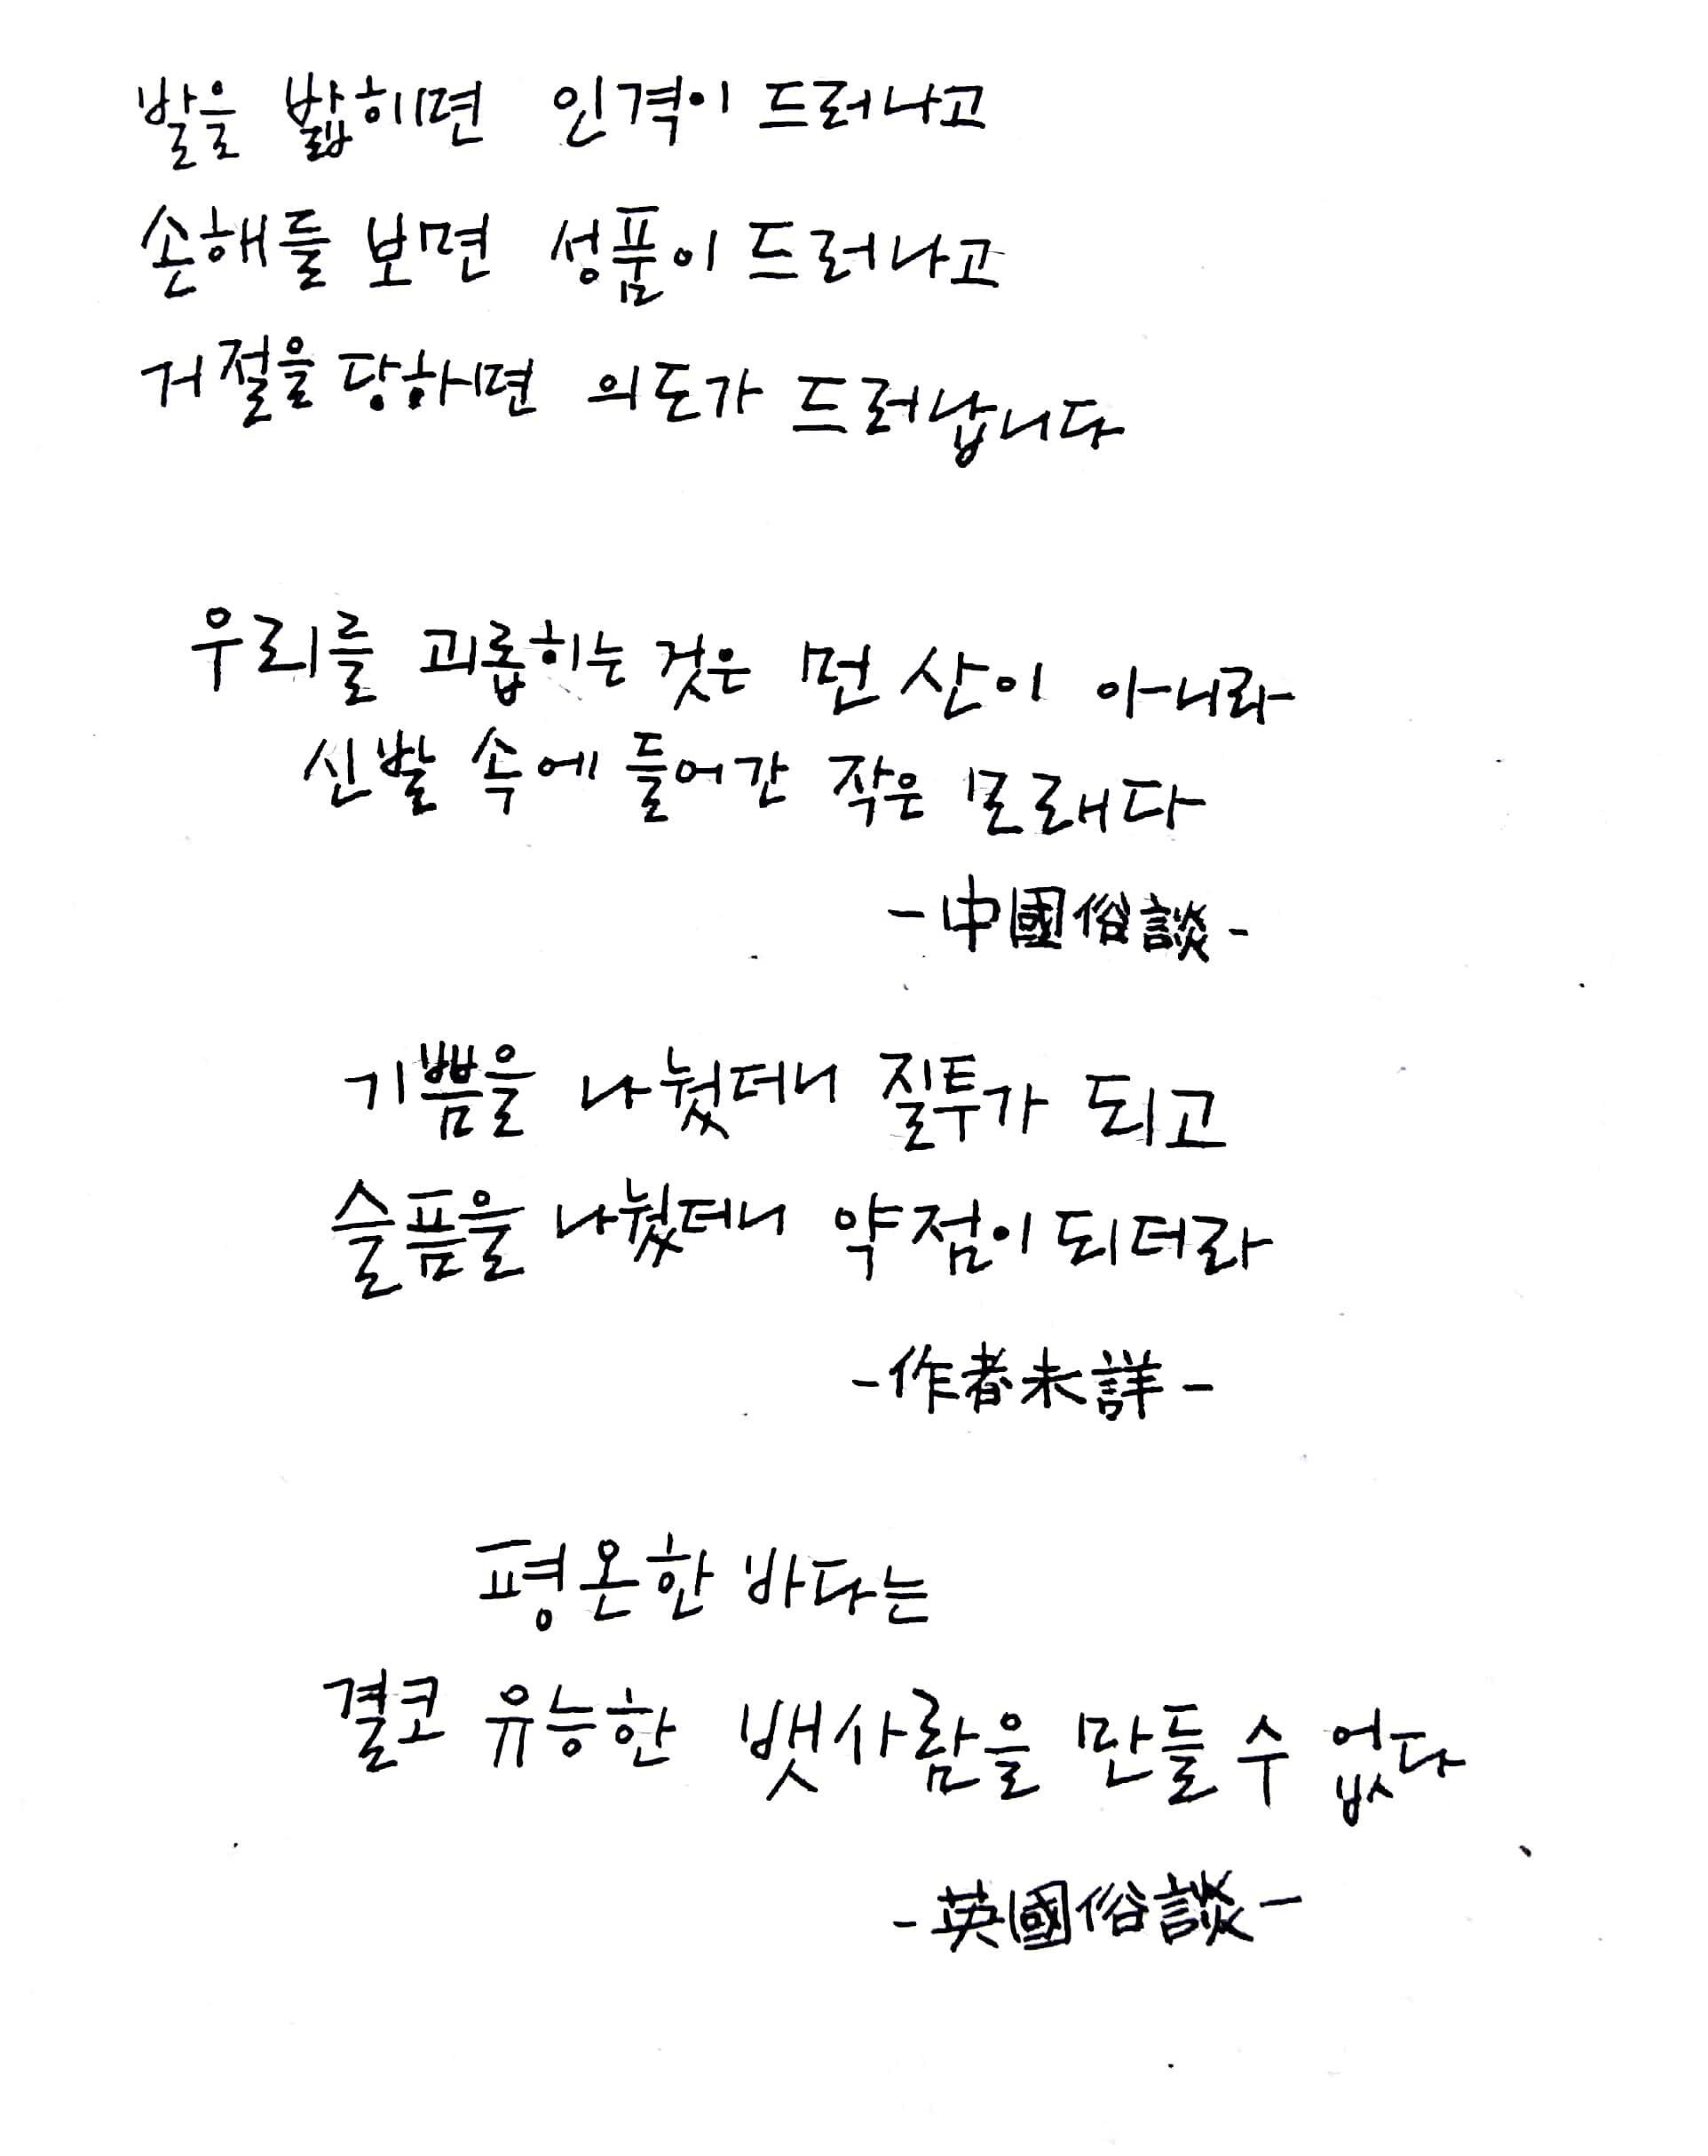 발을 밟히면 인격이 드러나고
손해를 보면 성품이 드러나고
거절을 당하면 의도가 드러납니다
우리를 괴롭히는 것은 먼 산이 아니라
신발 속에 들어간 작은 모래다
-中國俗談-
기쁨을 나눴더니 질투가 되고
슬픔을 나눴더니 약점이 되더라
-作者未詳-
평온한 바다는
결코 유능한 뱃사람을 만들 수 없다
-英國俗談-